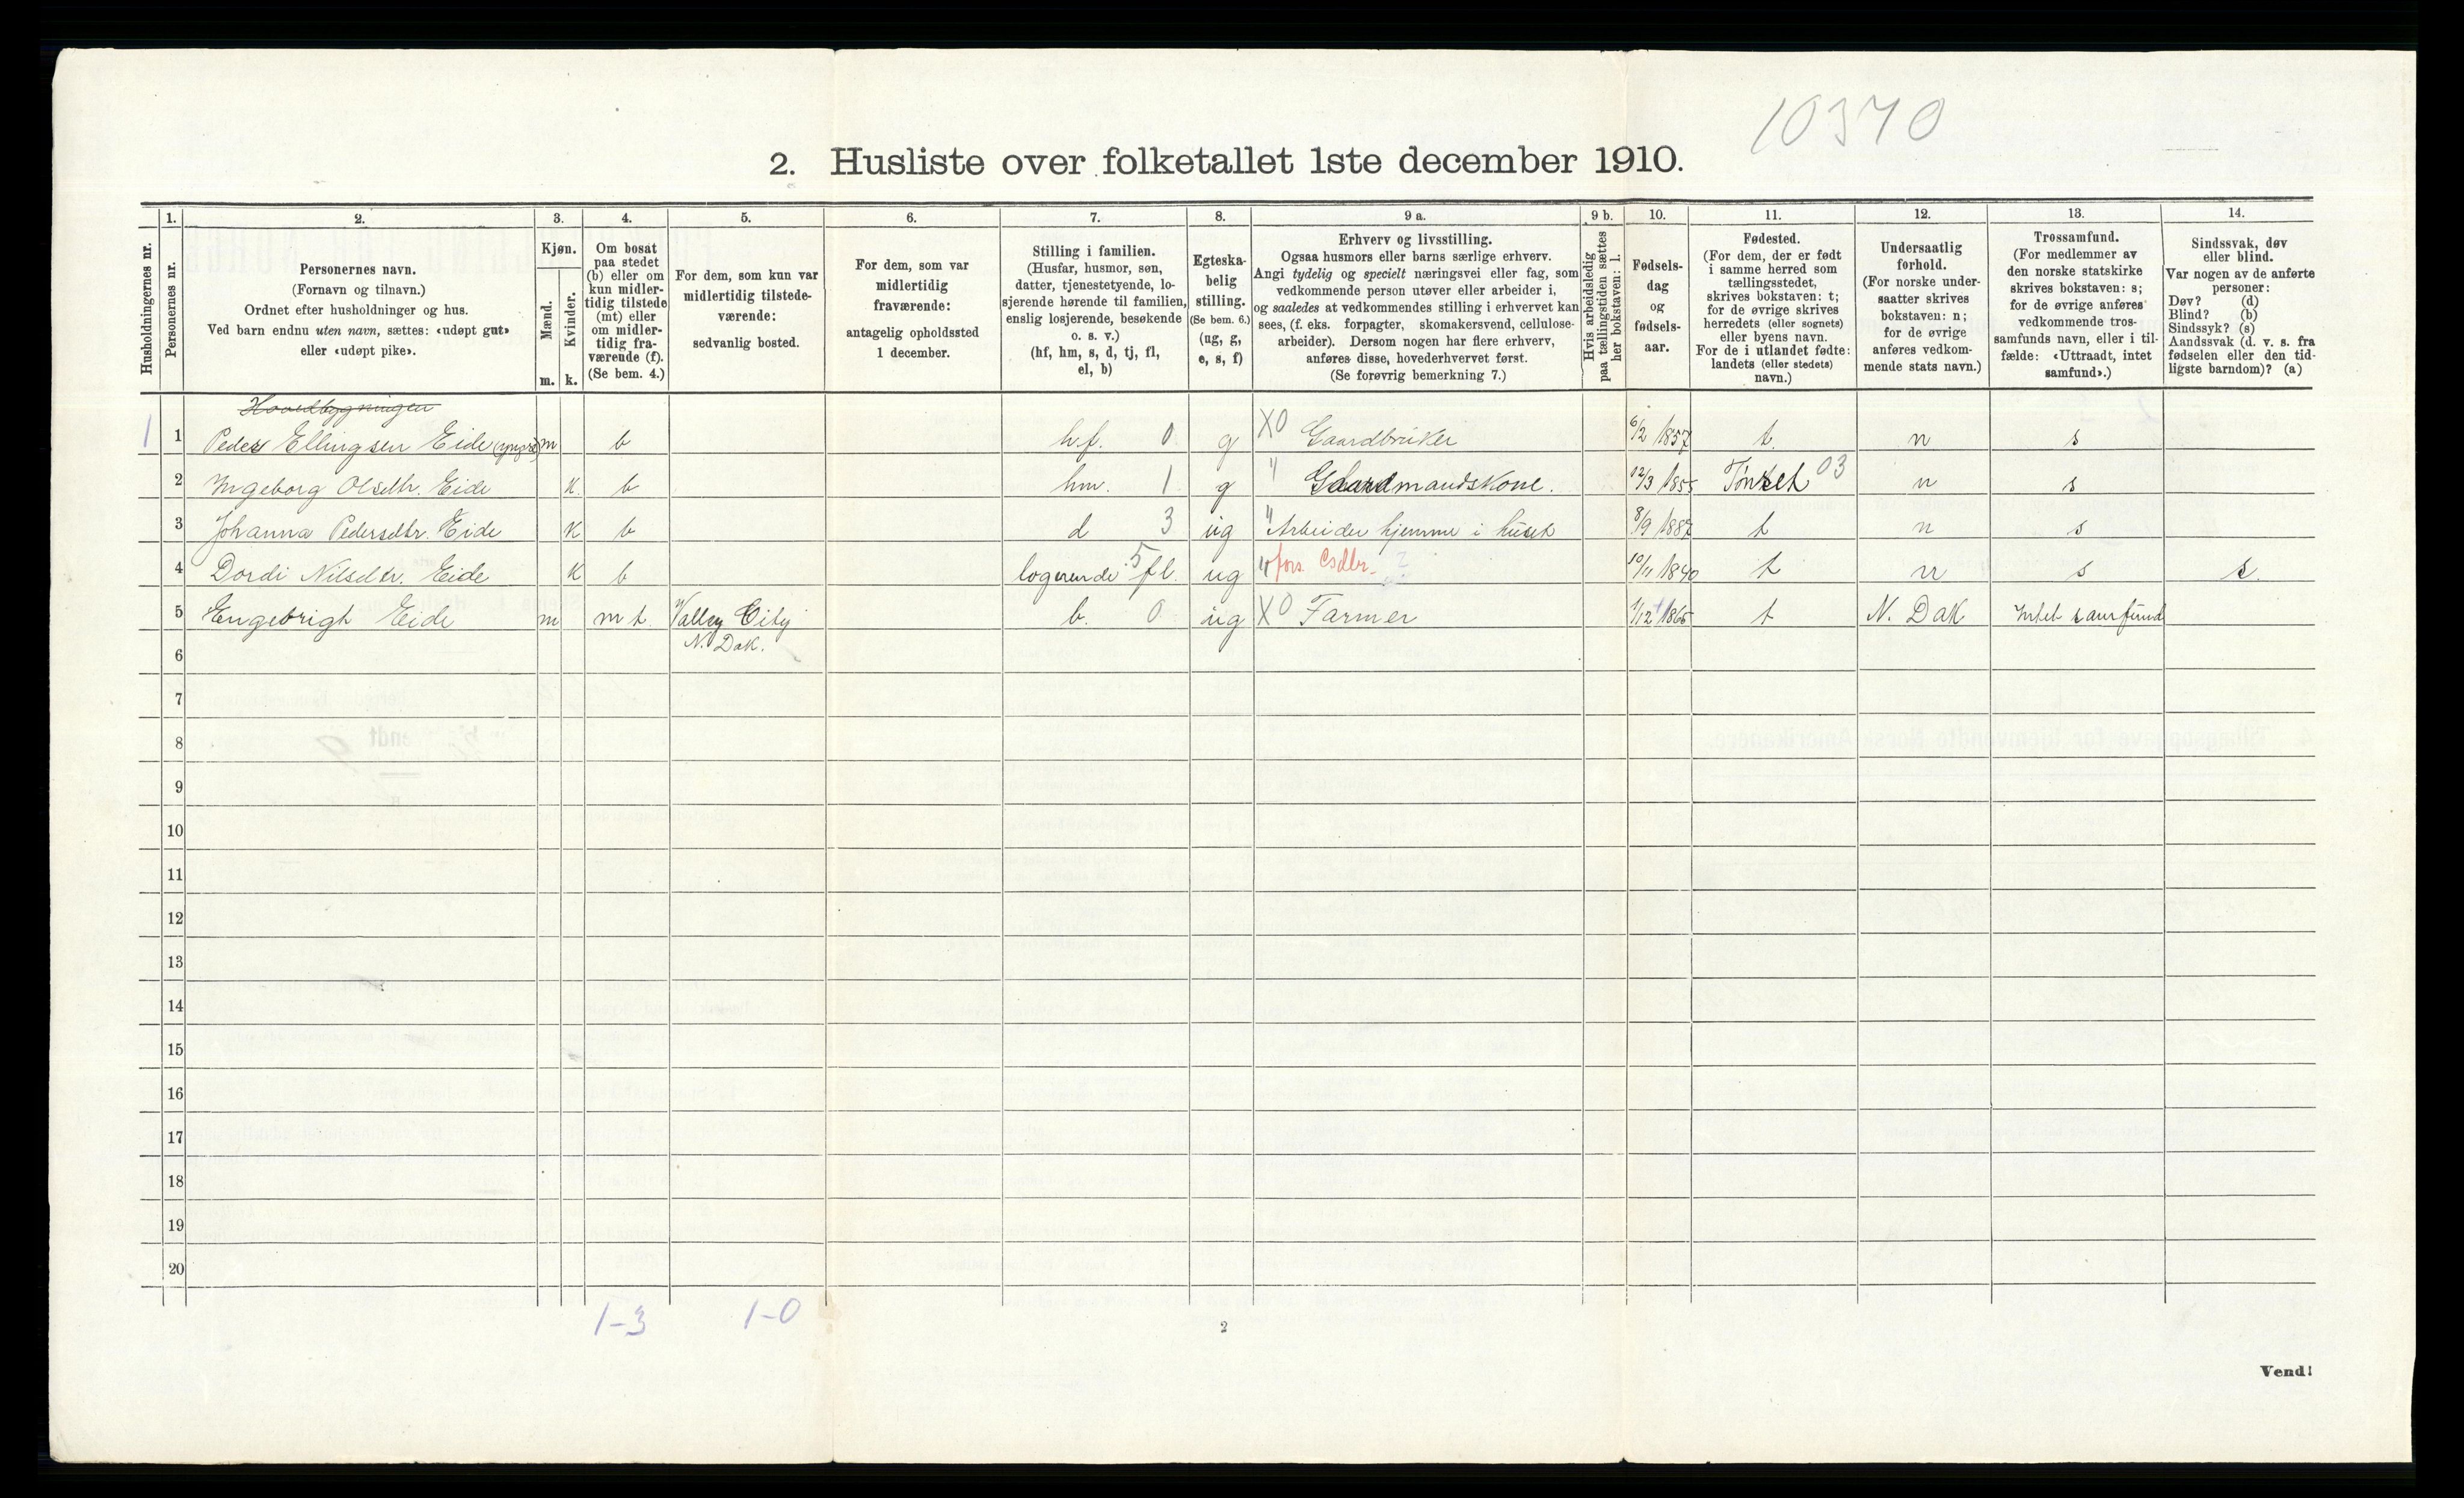 10370
2. Husliste over folketallet 1ste december 1910.
Husholdningernes nr.
1.
Personernes nr.
2.
Personernes navn.
(Fornavn og tilnavn.)
Ordnet efter husholdninger og hus.
Ved barn endnu uten navn, sættes: «udøpt gut»
eller «udøpt pike».
3.
Kjøn.
Mænd.
Kvinder.
m. k.
4.
Om bosat
paa stedet
(b) eller om
kun midler-
tidig tilstede
(mt) eller
om midler-
tidig fra-
værende (f).
(Se bem. 4.)
5.
For dem, som kun var
midlertidig tilstede-
værende:
sedvanlig bosted.
6.
For dem, som var
midlertidig
fraværende:
antagelig opholdssted
1 december.
7.
Stilling i familien.
(Husfar, husmor, søn,
datter, tjenestetyende, lo-
sjerende hørende til familien,
enslig losjerende, besøkende
o. s. v.)
(hf, hm, s, d, tj, fl,
el, b)
8.
Egteska-
belig
stilling.
(Se bem. 6.)
(ug, g,
e, s, f)
9 a.
Erhverv og livsstilling.
Ogsaa husmors eller barns særlige erhverv.
Angi tydelig og specielt næringsvei eller fag, som
vedkommende person utøver eller arbeider i,
og saaledes at vedkommendes stilling i erhvervet kan
sees, (f. eks. forpagter, skomakersvend, cellulose-
arbeider). Dersom nogen har flere erhverv,
anføres disse, hovederhvervet først.
(Se forøvrig bemerkning 7.)
9 b.
Hvis arbeidsledig
paa tællingstiden sættes
her bokstaven: l.
10.
Fødsels-
dag
og
fødsels-
aar.
11.
Fødested.
(For dem, der er født
i samme herred som
tællingsstedet,
skrives bokstaven: t;
for de øvrige skrives
herredets (eller sognets)
eller byens navn.
For de i utlandet fødte:
landets (eller stedets)
navn.)
12.
Undersaatlig
forhold.
(For norske under-
saatter skrives
bokstaven: n;
for de øvrige
anføres vedkom-
mende stats navn.)
13.
Trossamfund.
(For medlemmer av
den norske statskirke
skrives bokstaven: s;
for de øvrige anføres
vedkommende tros-
samfunds navn, eller i til-
fælde: «Uttraadt, intet
samfund».)
14.
Sindssvak, døv
eller blind.
Var nogen av de anførte
personer:
Døv? (d)
Blind? (b)
Sindssyk? (s)
Aandssvak (d. v. s. fra
fødselen eller den tid-
ligste barndom)? (a)
Hovedbygningen
1 1 Peder Ellingsen Eide (yngre) m b hf. 0 g X0 Gaardbruker 6/2 1857 t. n s
2 Ingeborg Olsdtr. Eide k. b hm. 1 g " Gaardmandskone. 12/3 1855 Tønset 03 n s
3 Johanna Pedersdtr. Eide k b d 3 ug " Arbeider hjemme i huset 8/9 1887 t n s
4 Dordi Nilsdtr. Eide k b logerende 5 fl. ug " fors. 10/11 1840 t n s s.
5 Engebrigt Eide m mt. Valley City b. 0 ug X0 Farmer 1/12 1865 t N. Dak Intet samfund
N. Dak.
6
7
8
9
10
11
12
13
14
15
16
17
18
19
20
1-3 1-0
2
Vend!